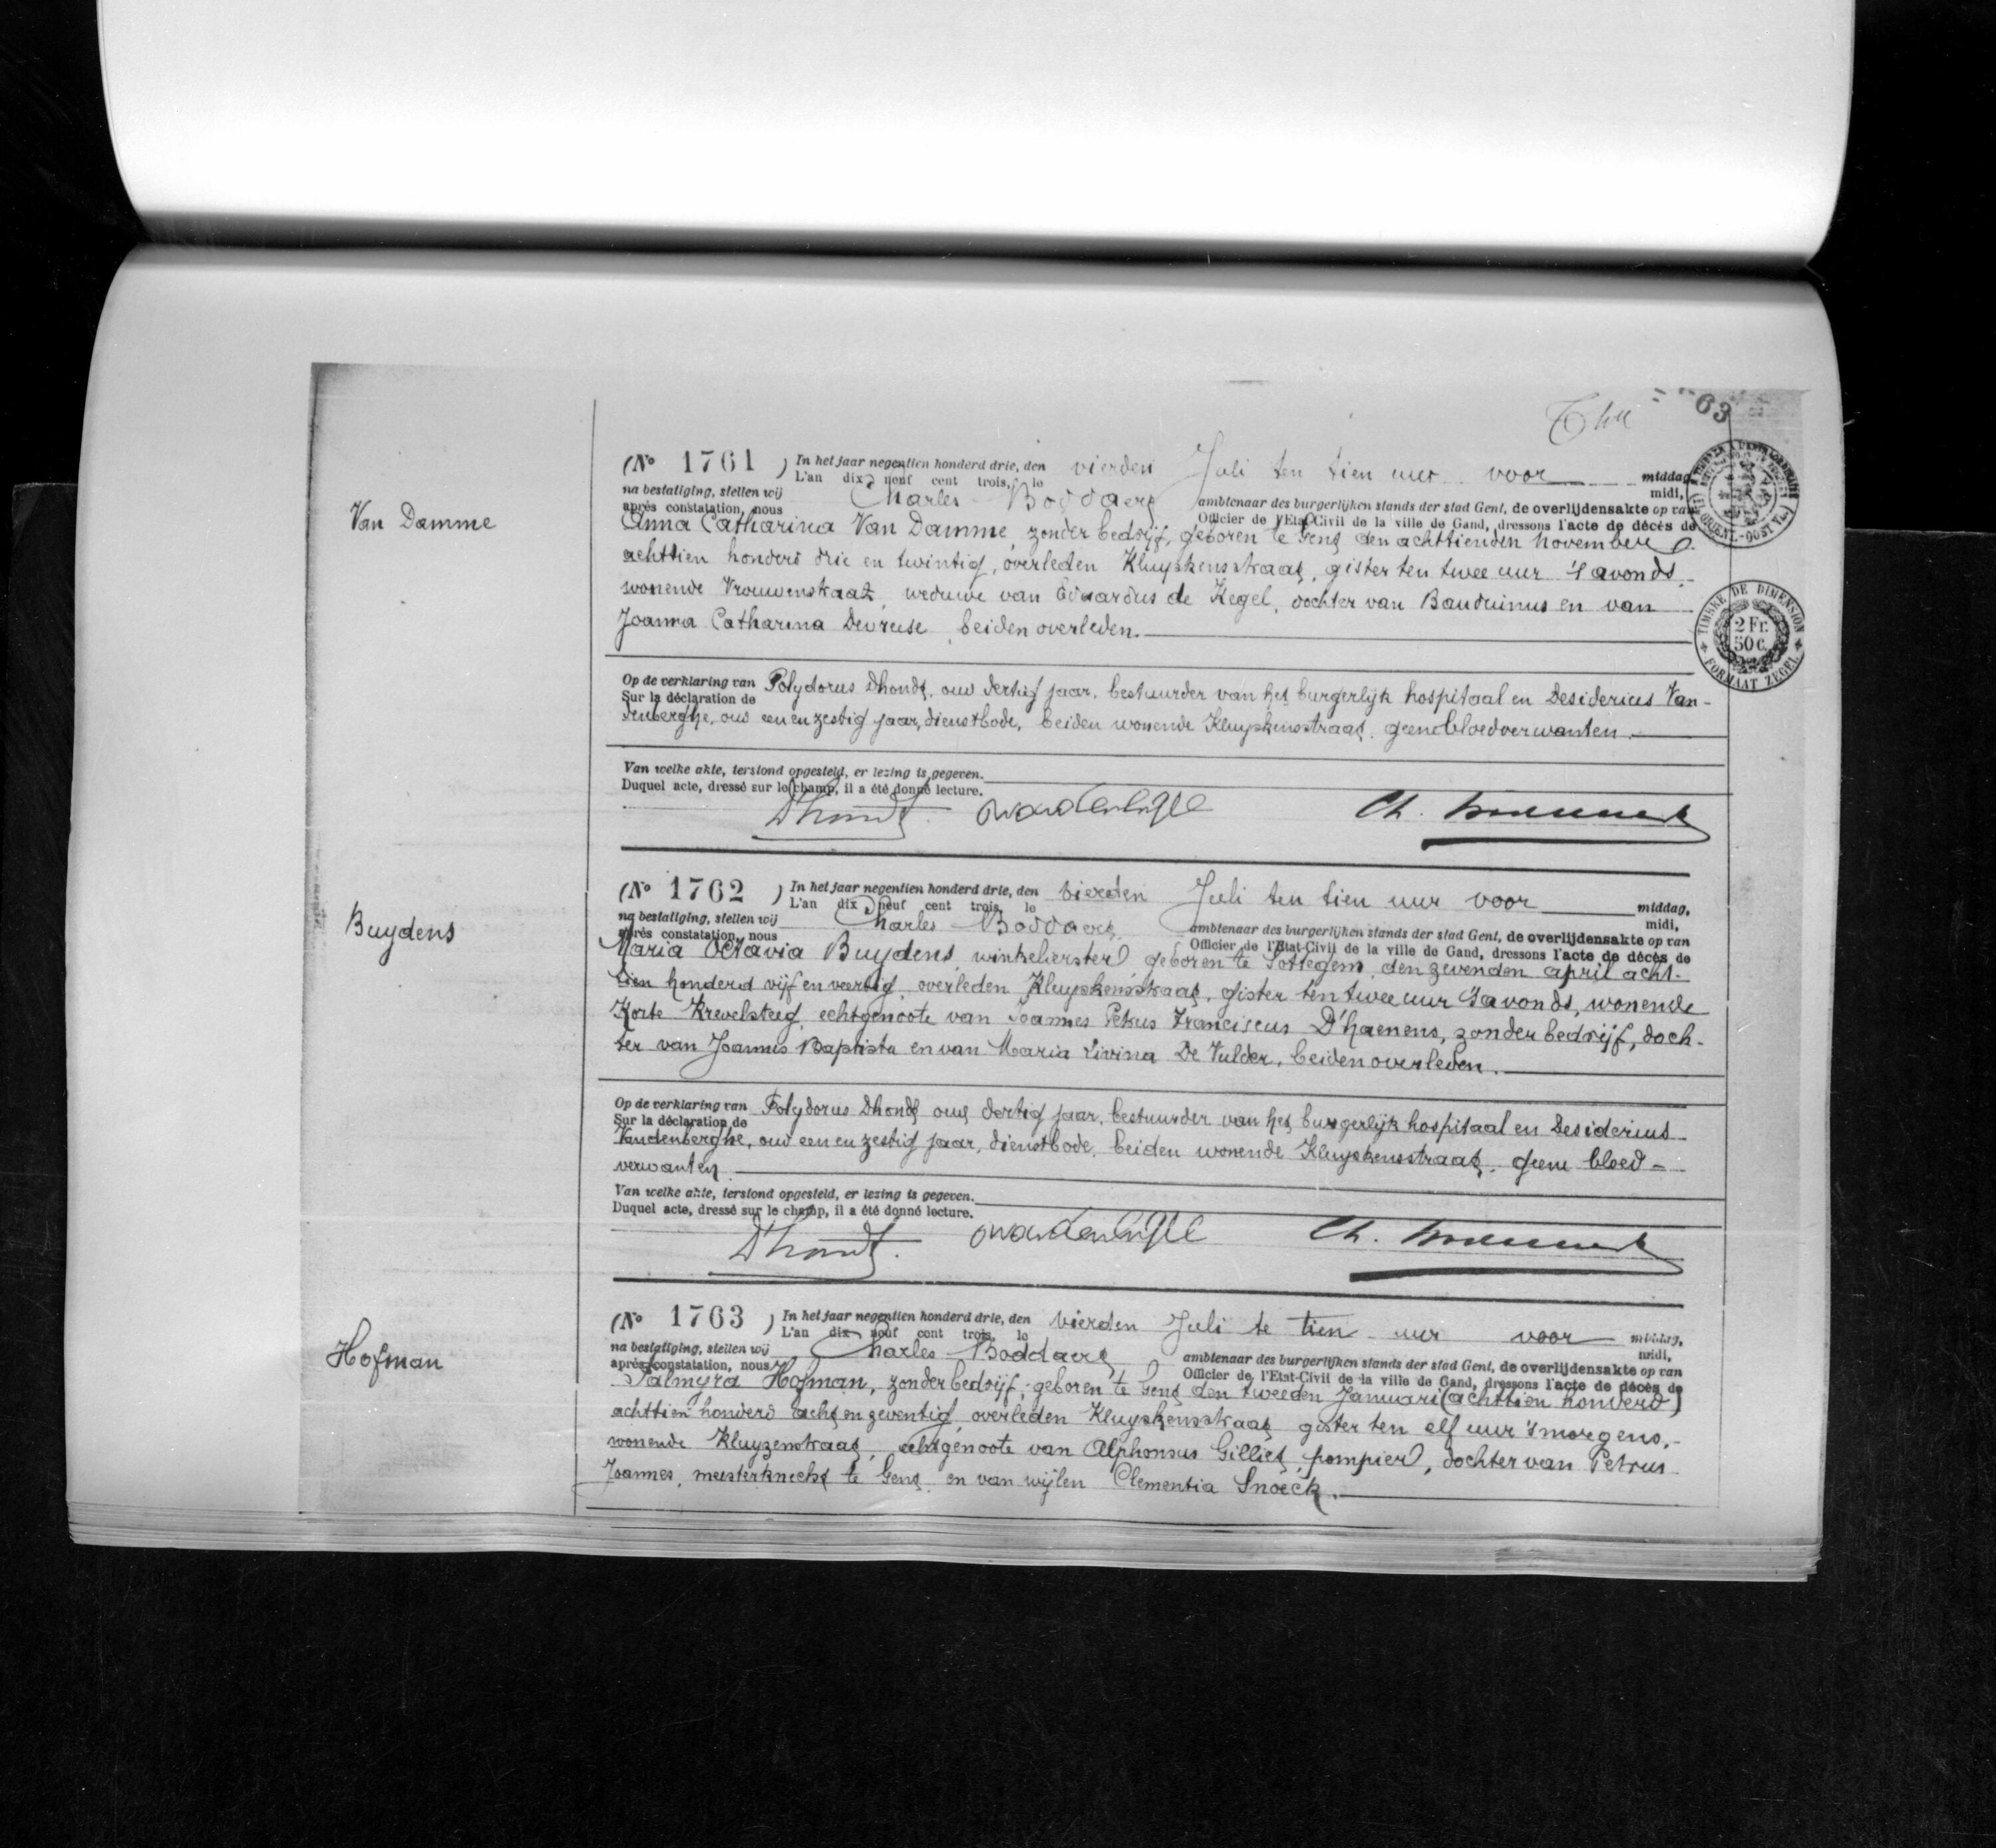 63
(No 1761 ) In het jaar negentien honderd drie, den vierden Juli ten tien uur voor middag,
L'an dix neuf cent trois, le midi,
na bestatiging, stellen wij Charles Boddaert ambtenaar des burgerlijken stands der stad Gent, de overlijdensakte op van
après constatation, nous Officier de l'Etat-Civil de la ville de Gand, dressons l'acte de décès de
Van Damme
Anna Catharina Van Damme, zonder bedrijf, geboren te Gent den achttienden november
achttien honderd drie en twintig, overleden Kluyskensstraat, gister ten twee uur 's avonds,
wonende Vrouwenstraat, weduwe van Eduardus de Kegel, dochter van Bauduinus en van
Joanna Catharina Devreese, beiden overleden.
TIMBRE DE DIMENSION
2 Fr.
50 c.
FORMAAT ZEGEL
Op de verklaring van Polydorus Dhondt, oud dertig jaar, bestuurder van het burgerlijk hospitaal en Desiderius Van-
Sur la déclaration de
denberghe, oud een en zestig jaar, dienstbode, beiden wonende Kluyskensstraat, geene bloedverwanten.
Van welke akte, terstond opgesteld, er lezing is gegeven.
Duquel acte, dressé sur le champ, il a été donné lecture.
Dhondt. Ch.
(No 1762 ) In het jaar negentien honderd drie, den vierden Juli ten tien uur voor middag,
L'an dix neuf cent trois, le midi,
na bestatiging, stellen wij Charles Boddaert ambtenaar des burgerlijken stands der stad Gent, de overlijdensakte op van
après constatation, nous Officier de l'Etat-Civil de la ville de Gand, dressons l'acte de décès de
Buydens
Maria Octavia Buydens, winkelierster, geboren te Sottegem, den zevenden april acht-
tien honderd vijf en veertig, overleden Kluyskensstraat, gister ten twee uur 's avonds, wonende
Korte Krevelsteeg, echtgenoote van Joannes Petrus Franciscus D'haenens, zonder bedrijf, doch-
ter van Joannes Baptista en van Maria Livina De Vulder, beiden overleden.
Op de verklaring van Polydorus Dhondt oud dertig jaar, bestuurder van het burgerlijk hospitaal en Desiderius
Sur la déclaration de
Vandenberghe, oud een en zestig jaar, dienstbode, beiden wonende Kluyskensstraat, geene bloed-
verwanten
Van welke akte, terstond opgesteld, er lezing is gegeven.
Duquel acte, dressé sur le champ, il a été donné lecture.
D'hondt. Ch.
(No 1763 ) In het jaar negentien honderd drie, den vierden Juli te tien uur voor middag,
L'an dix neuf cent trois, le midi,
na bestatiging, stellen wij Charles Boddaert ambtenaar des burgerlijken stands der stad Gent, de overlijdensakte op van
après constatation, nous Officier de l'Etat-Civil de la ville de Gand, dressons l'acte de décès de
Hofman
Palmyra Hofman, zonder bedrijf, geboren te Gent den tweeden Januari (achttien honderd)
achttien honderd acht en zeventig, overleden Kluyskensstraat gister ten elf uur 's morgens,
wonende Kluyzenstraat, echtgenoote van Alphonsus Gilliet, pompier, dochter van Petrus
Joannes, meesterknecht te Gent, en van wijlen Clementia Snoeck.